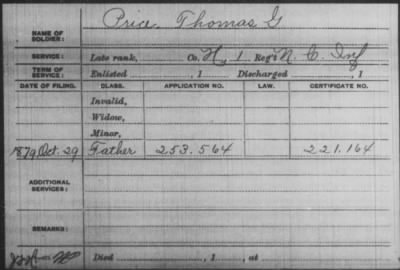 Price, Thomas G
NAME OF SOLDIER:
SERVICE: Late rank, Co. H, 1 Reg't N. C. Inf
TERM OF SERVICE: Enlisted , 1 Discharged , 1
DATE OF FILING. CLASS. APPLICATION NO. LAW. CERTIFICATE NO.
Invalid,
Widow,
Minor,
1879, Oct. 29 Father 253.564 221.164
ADDITIONAL SERVICES:
REMARKS:
Died , 1 , at